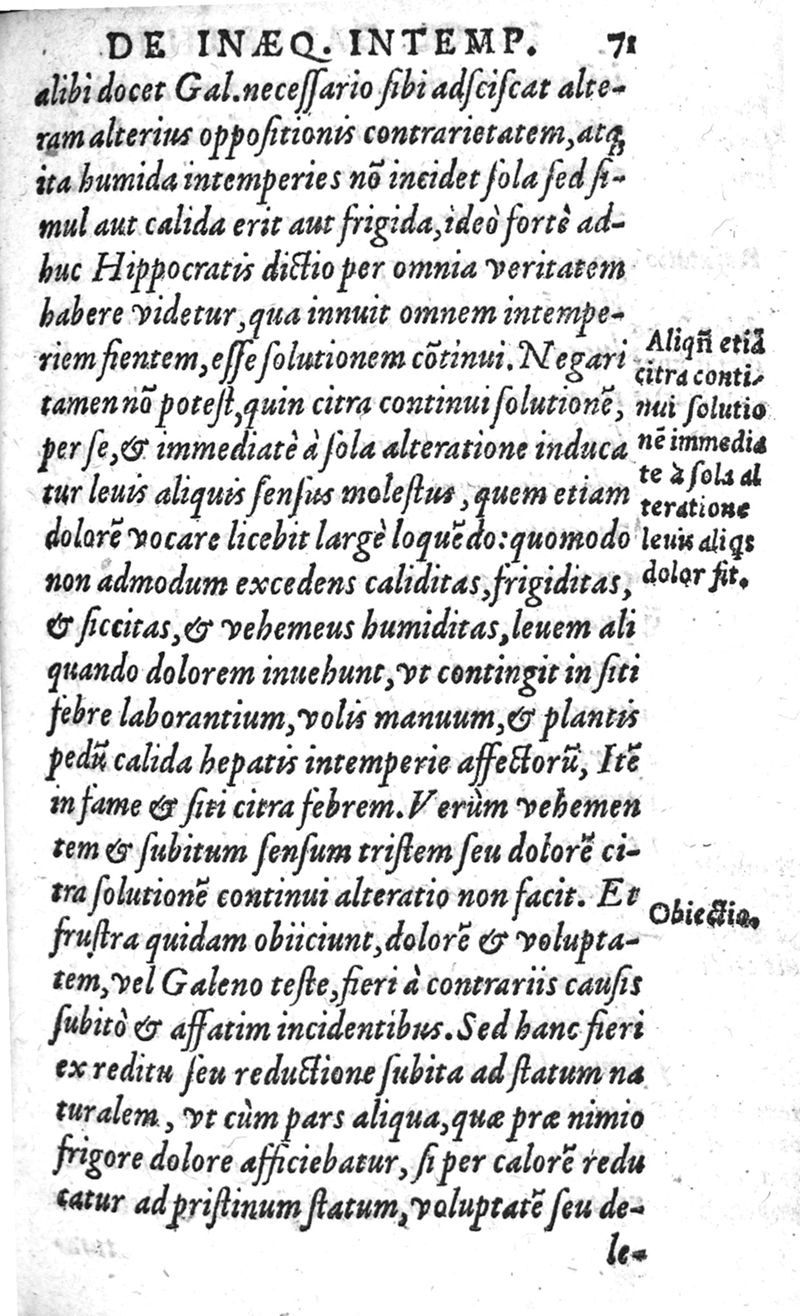 DE INÆQ. INTEMP. 71
alibi docet Gal. necessario sibi adsciscat alte-
ram alterius oppositionis contrarietatem, atq;
ita humida intemperies nō incidet sola sed si-
mul aut calida erit aut frigida, ideò fortè ad-
huc Hippocratis dictio per omnia veritatem
habere videtur, qua innuit omnem intempe-
riem fientem, esse solutionem cōtinui. Negari
tamen nō potest, quin citra continui solutionē,
per se, & immediatè à sola alteratione induca
tur leuis aliquis sensus molestus, quem etiam
dolorē vocare licebit largè loquēdo: quomodo
non admodum excedens caliditas, frigiditas,
& siccitas, & vehemeus humiditas, leuem ali
quando dolorem inuehunt, vt contingit in siti
febre laborantium, volis manuum, & plantis
pedū calida hepatis intemperie affectorū, Itē
in fame & siti citra febrem. Verùm vehemen
tem & subitum sensum tristem seu dolorē ci-
tra solutionē continui alteratio non facit. Et
frustra quidam obiiciunt, dolorē & volupta-
tem, vel Galeno teste, fieri à contrariis causis
subitò & affatim incidentibus. Sed hanc fieri
ex reditu seu reductione subita ad statum na
turalem, vt cùm pars aliqua, quæ præ nimio
frigore dolore afficiebatur, si per calorē redu
catur ad pristinum statum, voluptatē seu de-
le-
Aliqñ etiā
citra conti-
nui solutio
nē immedia
te à sola al
teratione
leuis aliqs
dolor fit.
Obiectio.